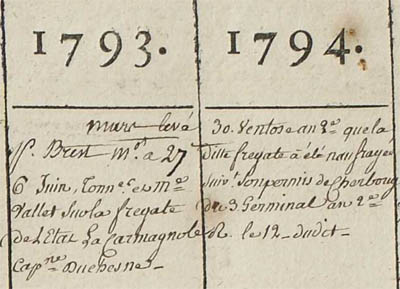 1793.
murs levé
Sr. Brest Mos. a 27
6 Juin, Tonn.r es me
Vallet sur la fregate
de L'Etat La Carmagnole
Cap.ne Duchesne
1794.
30. Ventose an 2e que la
ditte fregate à été naufragée
Suiv.t son permis de Cherbourg
du 3. Germinal an 2e
R. le 12 dudit